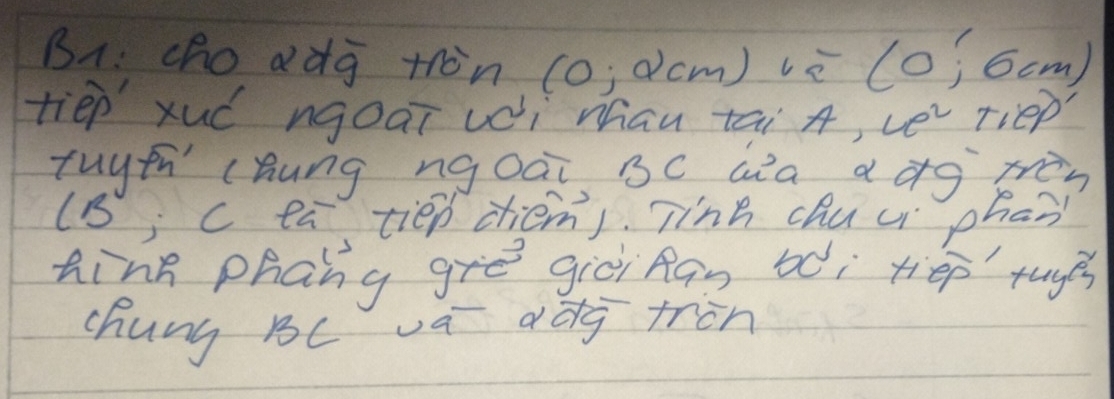 B1: cho 2 đg tròn (O; 2cm) và (O'; 6cm)
tiếp xúc ngoài với nhau tại A, vẽ tiếp
tuyến chung ngoài BC của 2 đg tròn
(B; C là tiếp điểm). Tính chu vi phần
hình phẳng giới hạn bởi tiếp tuyến
chung BC và 2 đg tròn